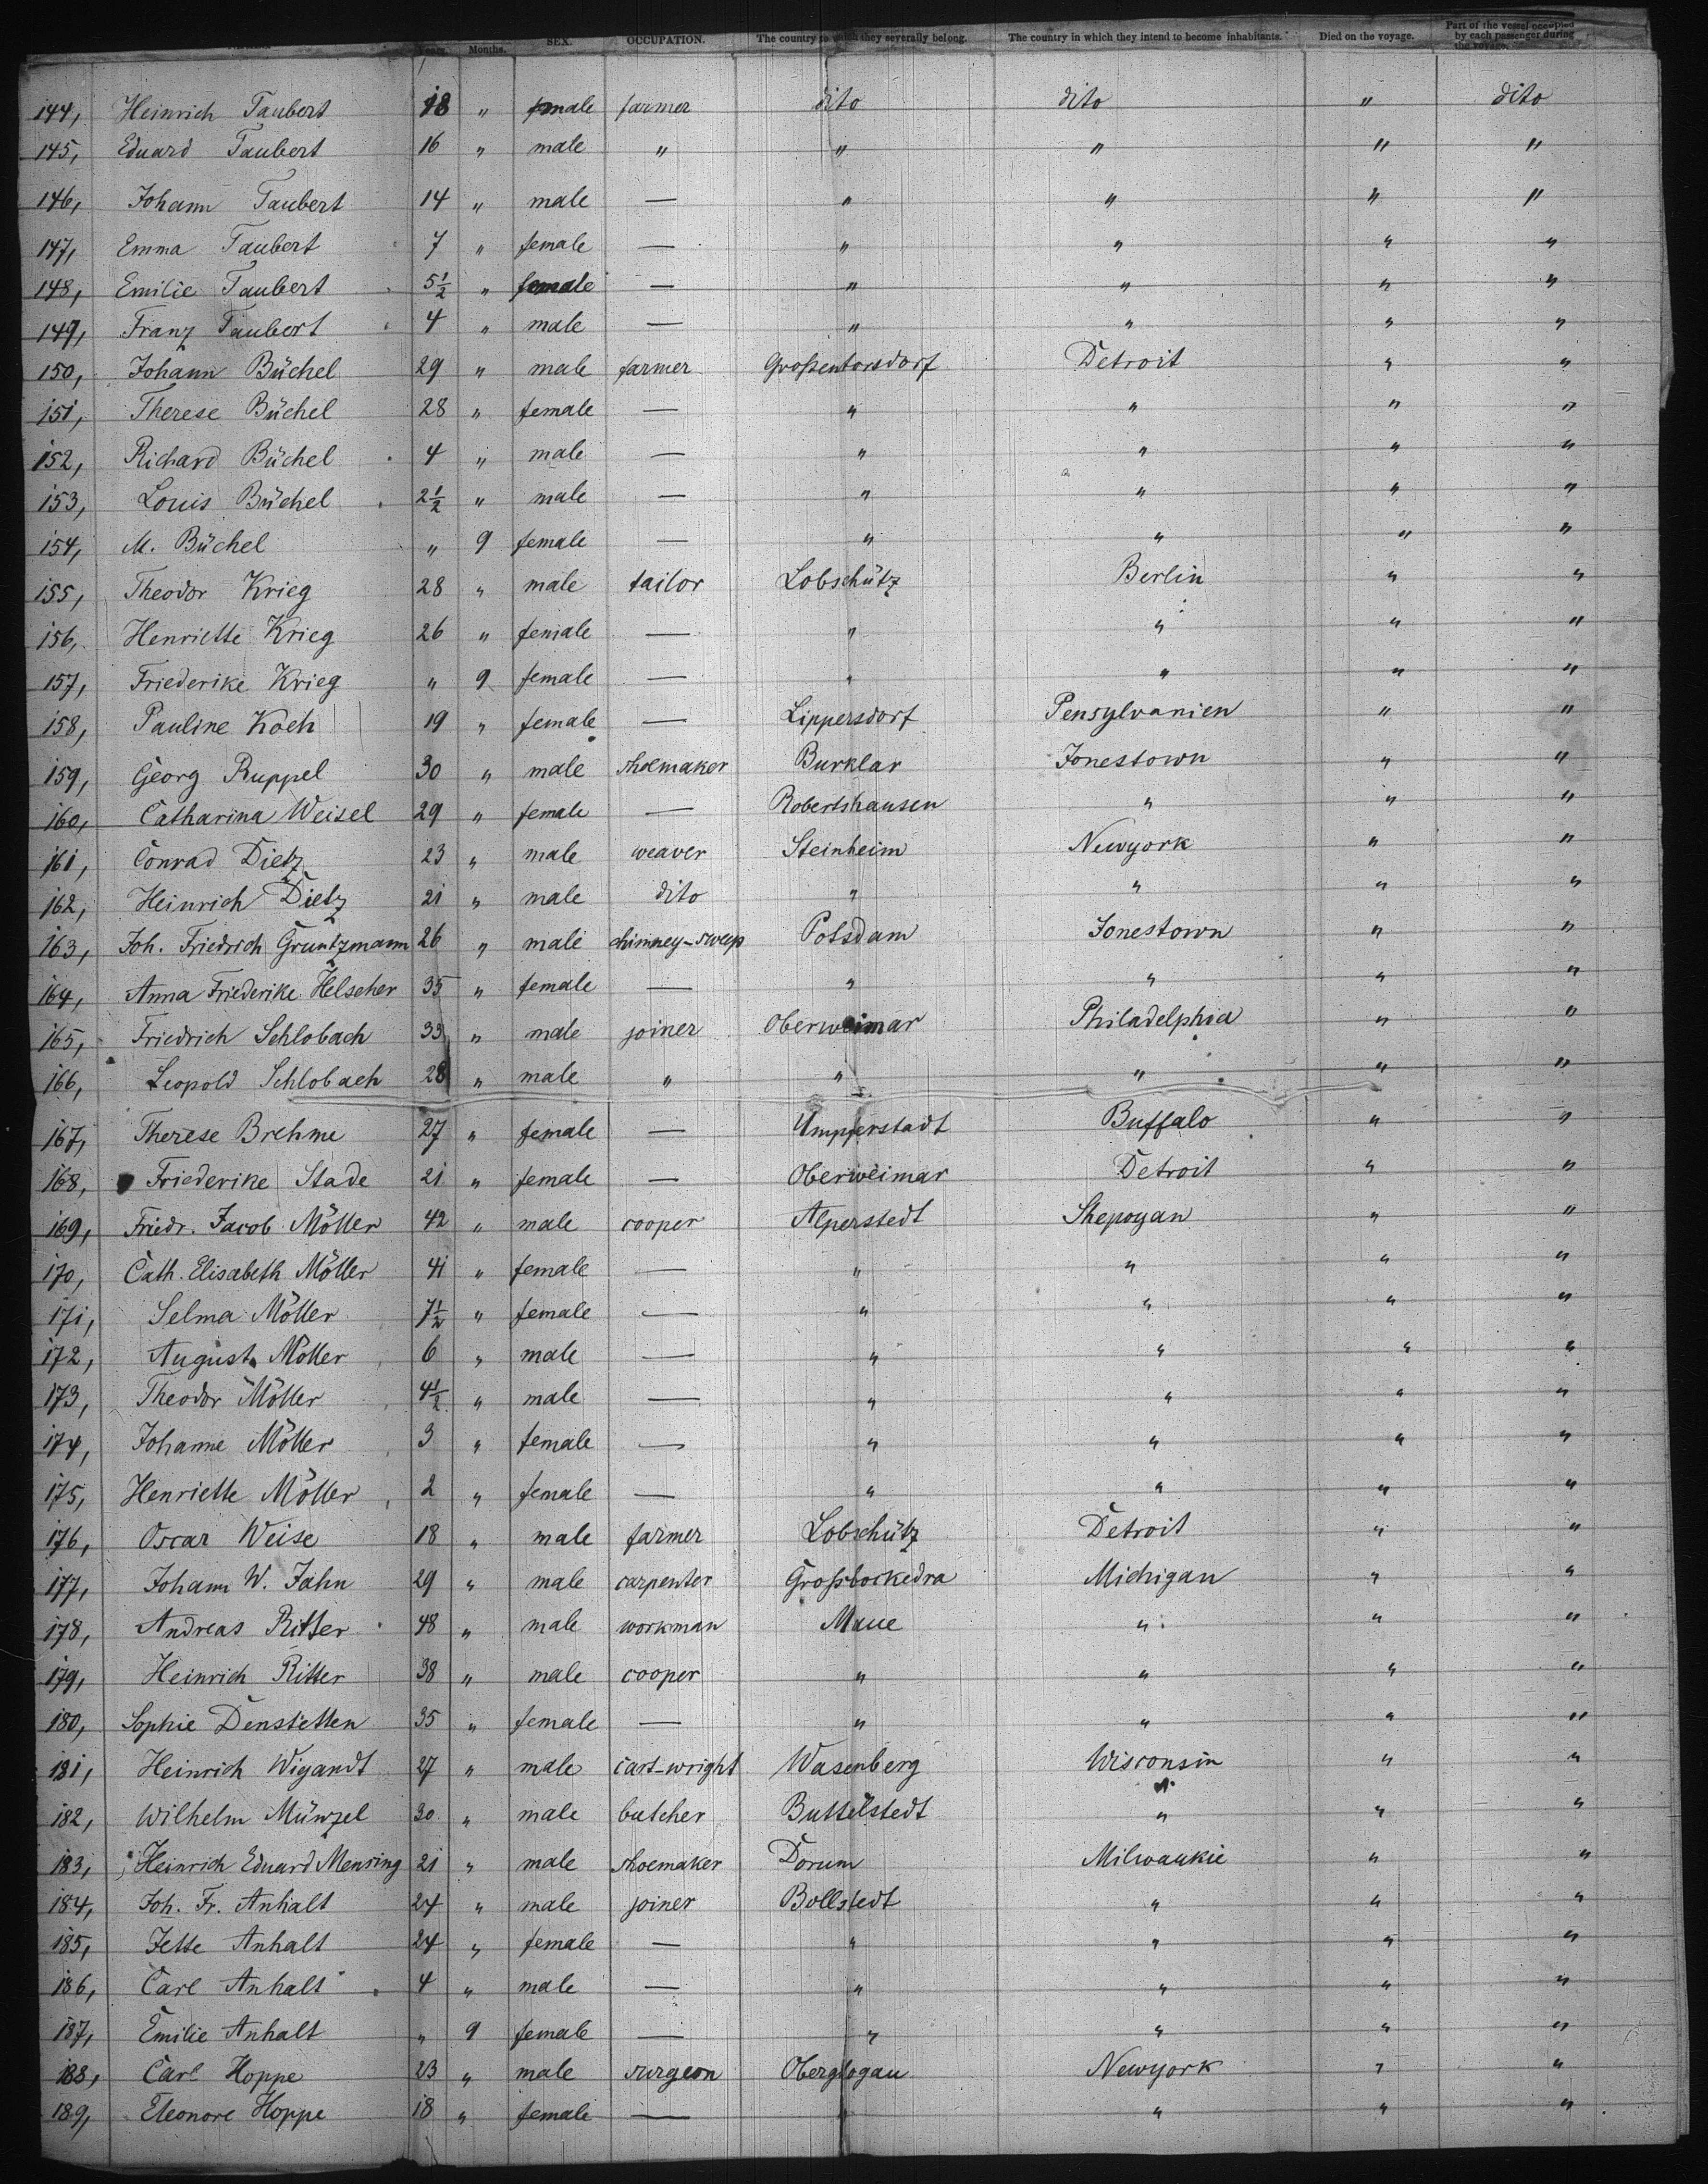 Years. Months. SEX. OCCUPATION. The country to which they severally belong. The country in which they intend to become inhabitants. Died on the voyage. Part of the vessel occupied by each passenger during the voyage.
144, Heinrich Taubert 18 " male farmer dito dito " dito
145, Eduard Taubert 16 " male " " " " "
146, Johann Taubert 14 " male — " " " "
147, Emma Taubert 7 " female — " " " "
148, Emilie Taubert 5 1/2 " female — " " " "
149, Franz Taubert 4 " male — " " " "
150, Johann Büchel 29 " male farmer Großentorsdorf Detroit " "
151, Therese Büchel 28 " female — " " " "
152, Richard Büchel 4 " male — " " " "
153, Louis Büchel 2 1/2 " male — " " " "
154, M. Büchel " 9 female — " " " "
155, Theodor Krieg 28 " male tailor Lobschütz Berlin " "
156, Henriette Krieg 26 " female — " " " "
157, Friederike Krieg " 9 female — " " " "
158, Pauline Koch 19 " female — Lippersdorf Pensylvanien " "
159, Georg Ruppel 30 " male shoemaker Burklar Jonestown " "
160, Catharina Weisel 29 " female — Robertshausen " " "
161, Conrad Dietz 23 " male weaver Steinheim Newyork " "
162, Heinrich Dietz 21 " male dito " " " "
163, Joh. Friedrich Gruntzmann 26 " male chimney-sweep Potsdam Jonestown " "
164, Anna Friederike Helscher 35 " female — " " " "
165, Friedrich Schlobach 33 " male joiner Oberweimar Philadelphia " "
166, Leopold Schlobach 28 " male " " " " "
167, Therese Brehme 27 " female — Umpferstadt Buffalo " "
168, Friederike Stade 21 " female — Oberweimar Detroit " "
169, Friedr. Jacob Möller 42 " male cooper Alperstedt Shepoyan " "
170, Cath. Elisabeth Möller 41 " female — " " " "
171, Selma Möller 7 1/2 " female — " " " "
172, August Möller 6 " male — " " " "
173, Theodor Möller 4 1/2 " male — " " " "
174, Johanne Möller 3 " female — " " " "
175, Henriette Möller 2 " female — " " " "
176, Oscar Weise 18 " male farmer Lobschütz Detroit " "
177, Johann W. Jahn 29 " male carpenter Großbockedra Michigan " "
178, Andreas Ritter 48 " male workman Maue " " "
179, Heinrich Ritter 38 " male cooper " " " "
180, Sophie Denstetten 35 " female — " " " "
181, Heinrich Wigandt 27 " male cart-wright Wasenberg Wisconsin " "
182, Wilhelm Münzel 30 " male butcher Buttelstedt " " "
183, Heinrich Eduard Mensing 21 " male shoemaker Dorum Milwaukie " "
184, Joh. Fr. Anhalt 24 " male joiner Bollstedt " " "
185, Jette Anhalt 24 " female — " " " "
186, Carl Anhalt 4 " male — " " " "
187, Emilie Anhalt " 9 female — " " " "
188, Carl Hoppe 23 " male surgeon Oberglogau Newyork " "
189, Eleonore Hoppe 18 " female — " " " "